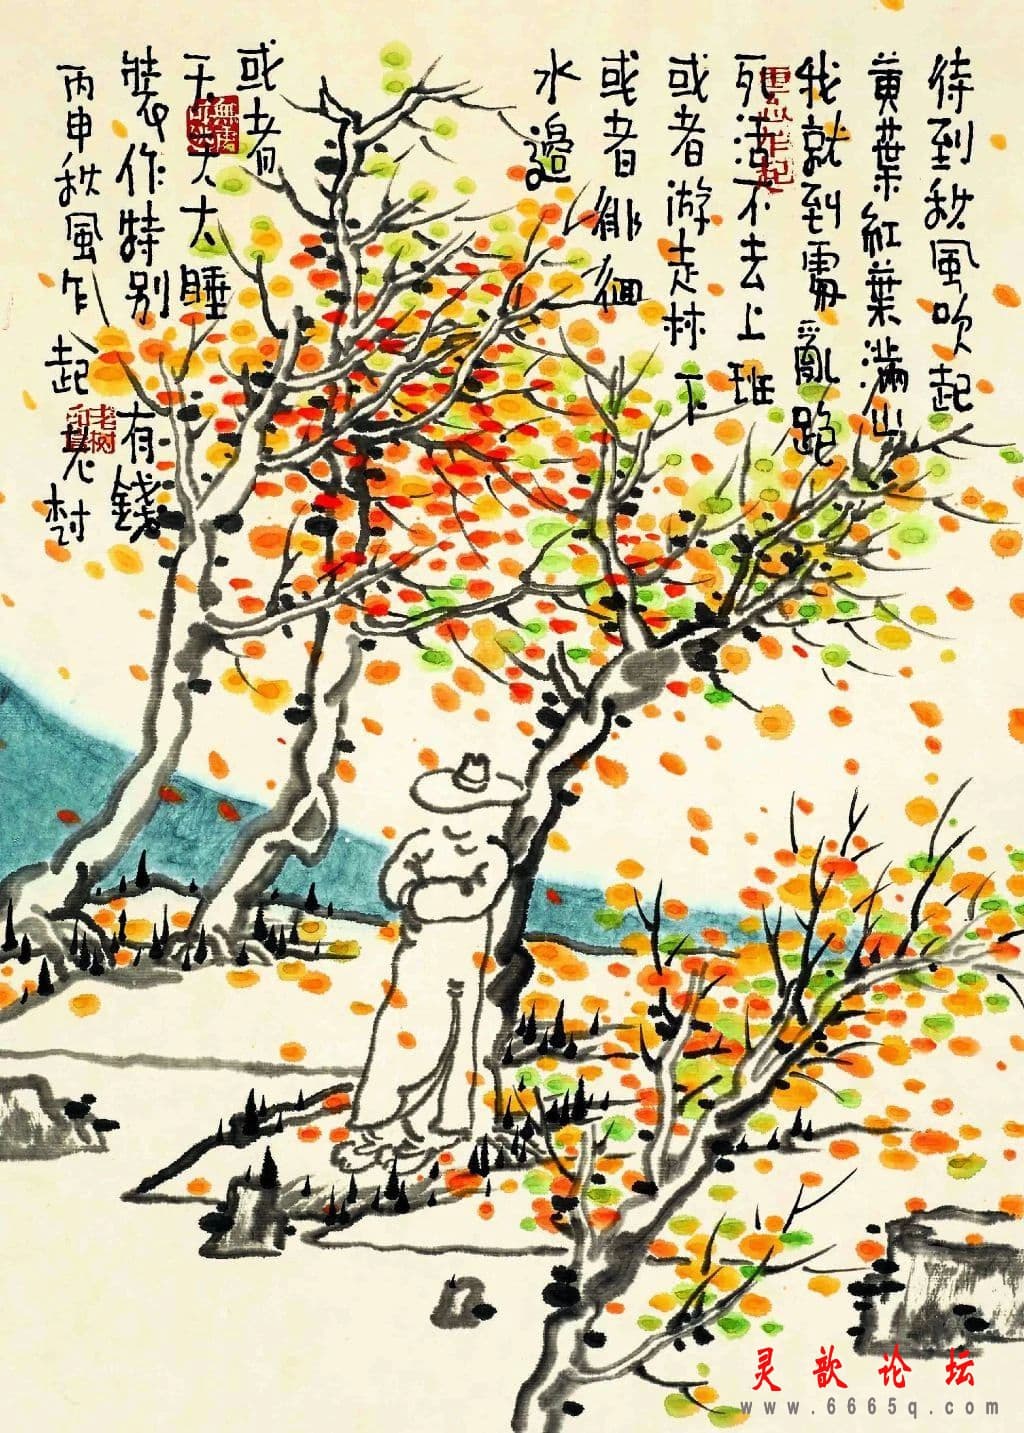 待到秋風吹起
黃葉紅葉滿山
我就到處亂跑
死活不去上班
或者游走林下
或者徘徊
水邊
或者
睡
裝作特别有錢
丙申秋風乍起 老树
老树
灵歆论坛
www.6665q.com